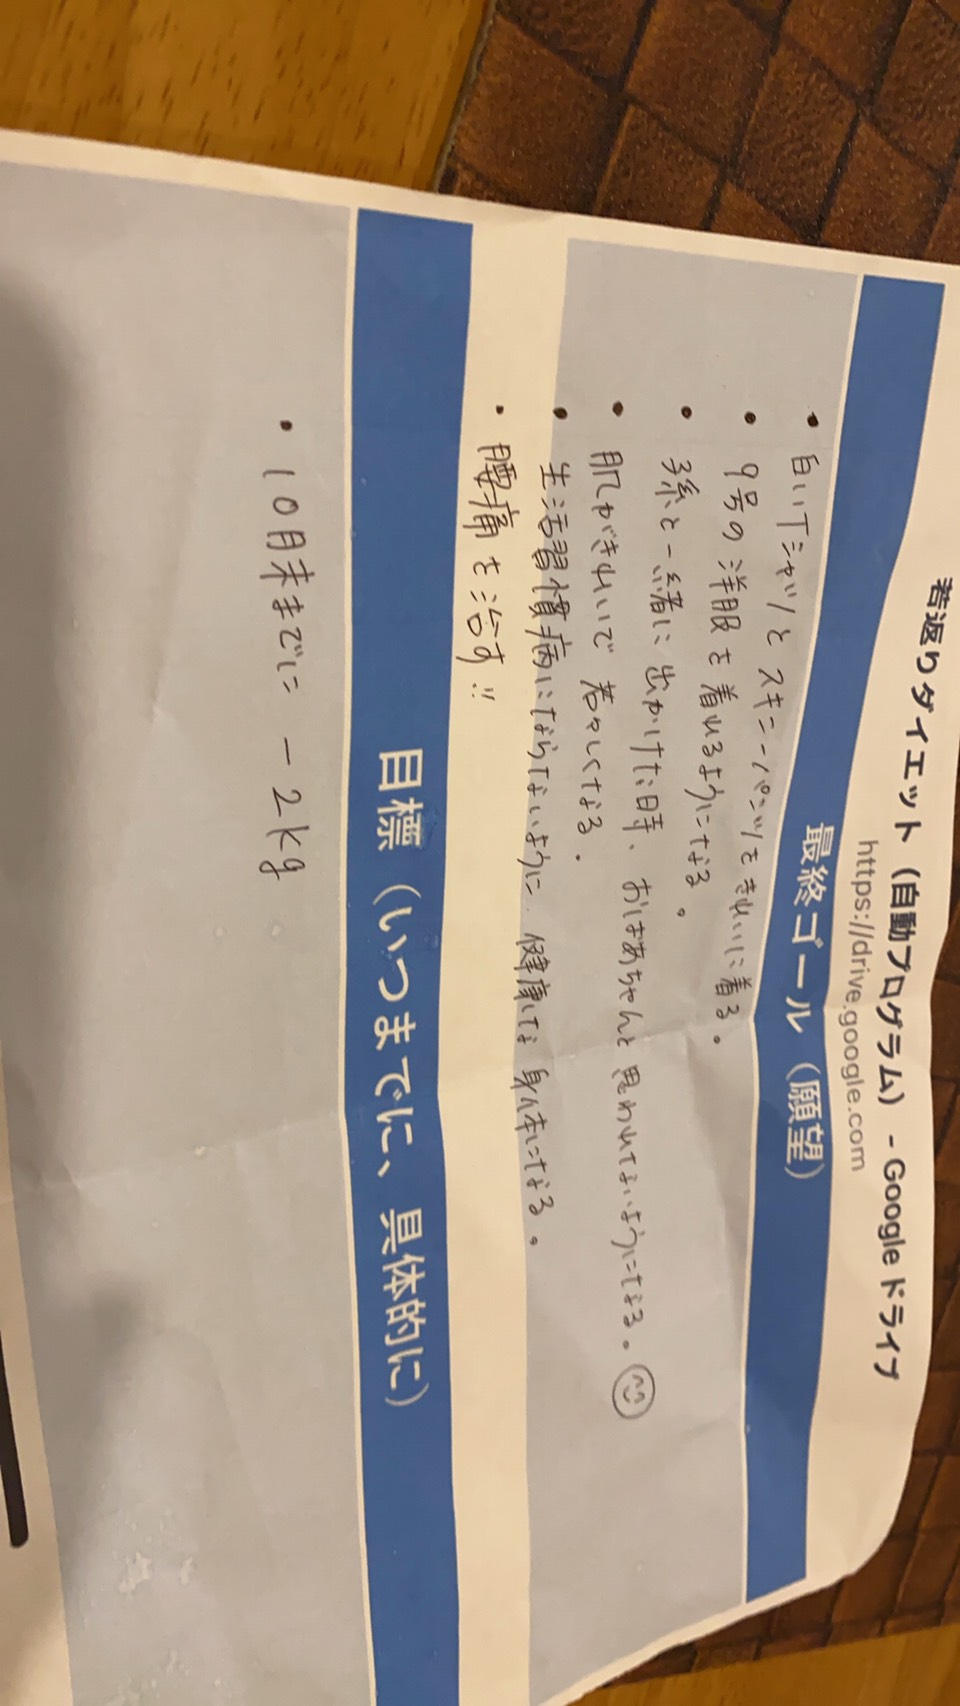 若返りダイエット（自動プログラム） - Google ドライブ
https://drive.google.com
最終ゴール（願望）
・白いTシャツとスキニーパンツをきれいに着る。
・9号の洋服を着れるようになる。
・孫と一緒に出かけた時、おばあちゃんと思われないようになる。
・肌がきれいで若々しくなる。
・生活習慣病にならないように、健康な身体になる。
・腰痛を治す!!
目標（いつまでに、具体的に）
・10月末までに −2kg